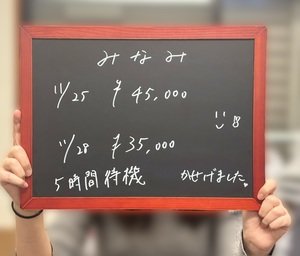 みなみ
11/25 ¥45,000
11/28 ¥35,000
5時間待機 かせげました